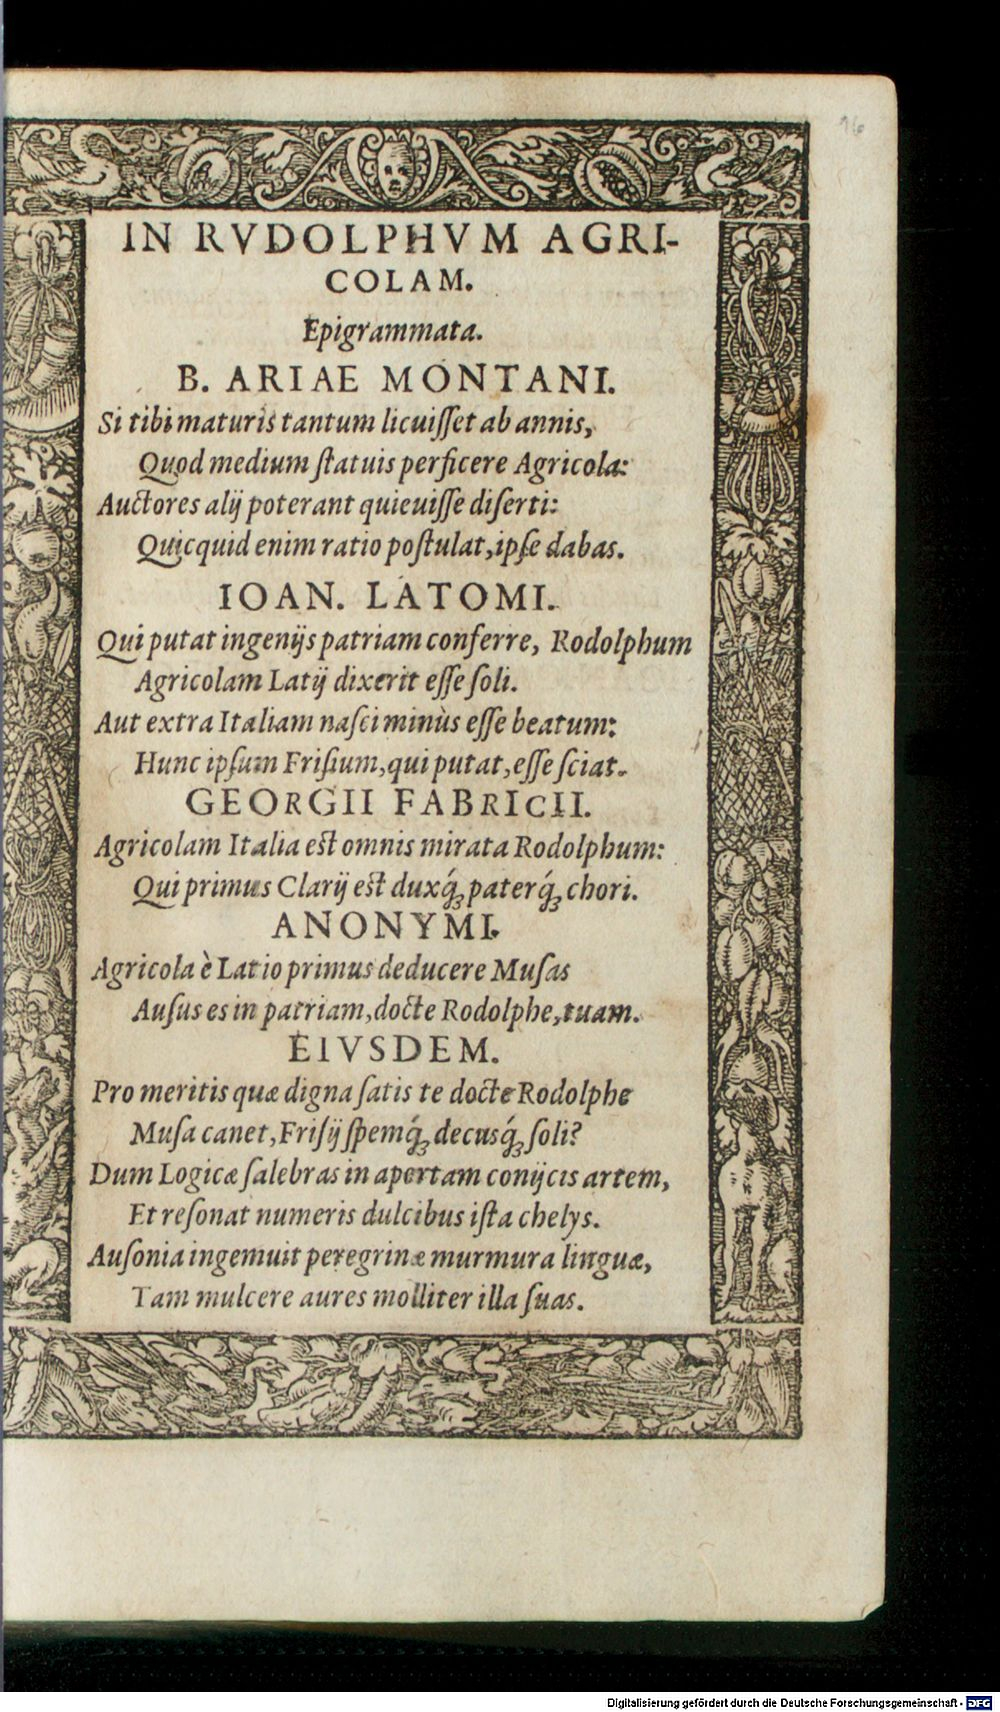 16
IN RVDOLPHVM AGRI-
COLAM.
Epigrammata.
B. ARIAE MONTANI.
Si tibi maturis tantum licuiſſet ab annis,
Quod medium ſtatuis perficere Agricola:
Auctores alij poterant quieuiſſe diſerti:
Quicquid enim ratio poſtulat, ipſe dabas.
IOAN. LATOMI.
Qui putat ingenijs patriam conferre, Rodolphum
Agricolam Latij dixerit eſſe ſoli.
Aut extra Italiam naſci minùs eſſe beatum:
Hunc ipſum Friſium, qui putat, eſſe ſciat.
GEORGII FABRICII.
Agricolam Italia eſt omnis mirata Rodolphum:
Qui primus Clarij eſt duxq́; paterq́; chori.
ANONYMI.
Agricola è Latio primus deducere Muſas
Auſus es in patriam, docte Rodolphe, tuam.
EIVSDEM.
Pro meritis quæ digna ſatis te docte Rodolphe
Muſa canet, Friſij ſpemq́; decusq́; ſoli?
Dum Logicæ ſalebras in apertam conijcis artem,
Et reſonat numeris dulcibus iſta chelys.
Auſonia ingemuit peregrinæ murmura linguæ,
Tam mulcere aures molliter illa ſuas.
Digitalisierung gefördert durch die Deutsche Forschungsgemeinschaft - DFG